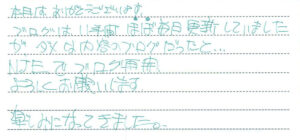 本日は、ありがとうございます。
ブログは、以前、ほぼ毎日更新していました
が ダメな内容のブログだったと…
ブログ再開
よろしくお願いします。
楽しみになってきました。